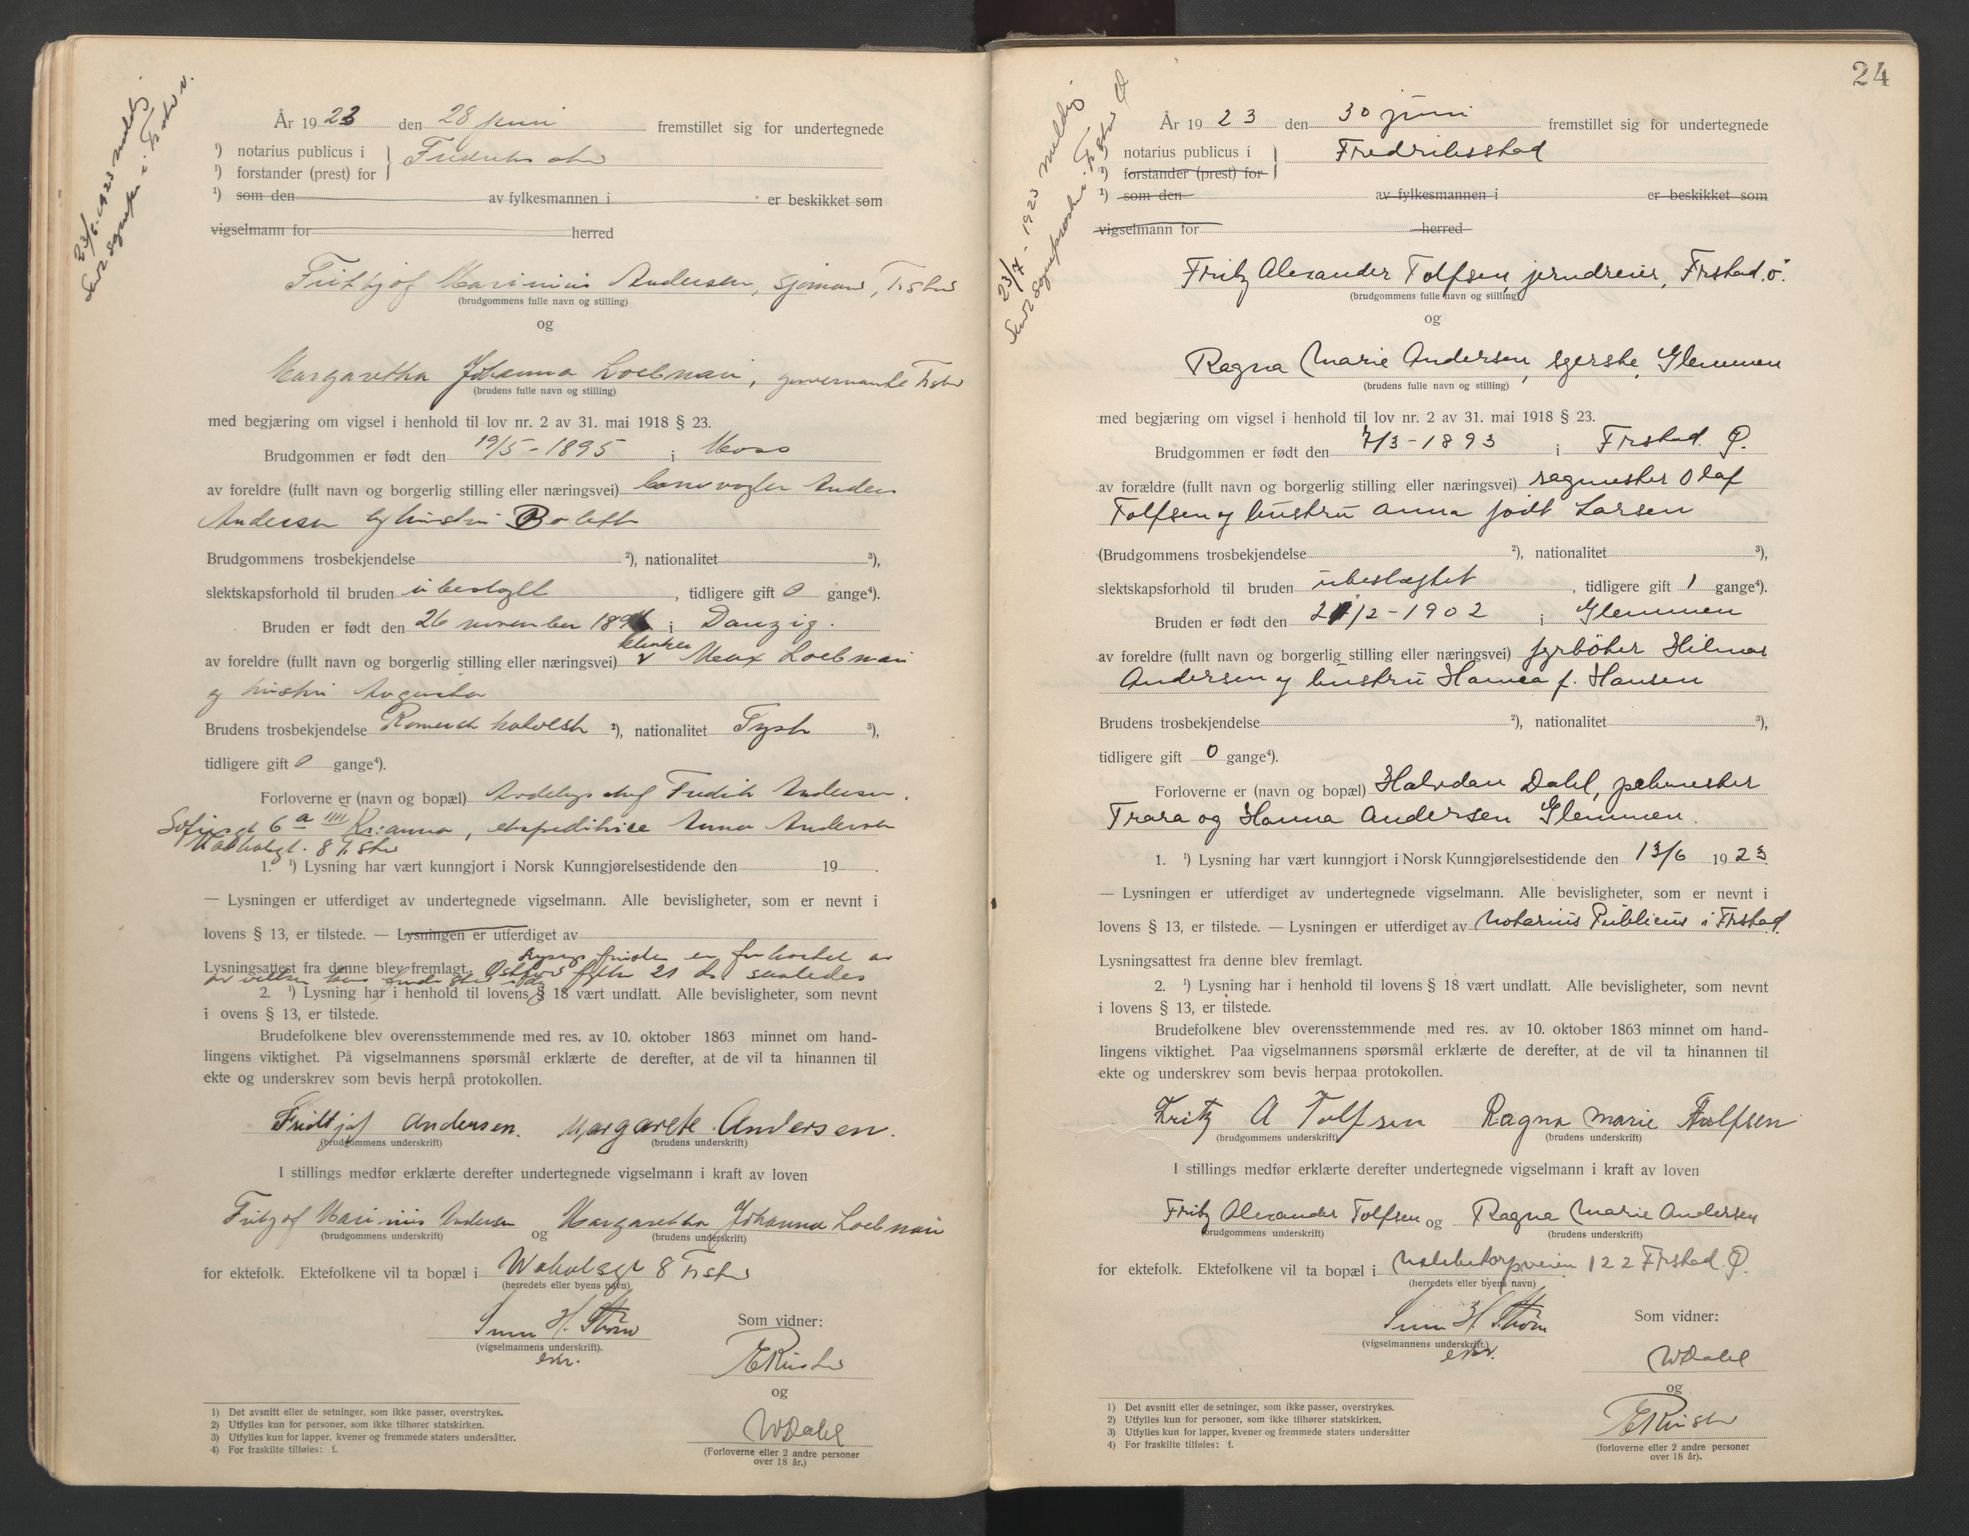 23/6-1923 meldig
År 1923 den 28 juni fremstillet sig for undertegnede
¹) notarius publicus i
¹) forstander (prest) for
¹) som den av fylkesmannen i er beskikket som
vigselmann for herred
Fritbjof Marinius Andersen, sjømann, Frstad
(brudgommens fulle navn og stilling)
og
Margaretha Johanna Loebnau, guvernante Frstad
(brudens fulle navn og stilling)
med begjæring om vigsel i henhold til lov nr. 2 av 31. mai 1918 § 23.
Brudgommen er født den 19/5-1895 i Moss
av foreldre (fullt navn og borgerlig stilling eller næringsvei) Anders
Andersen og hustru Bolette
Brudgommens trosbekjendelse ²), nationalitet ³),
slektskapsforhold til bruden ubeslægtt, tidligere gift 0 gange⁴).
Bruden er født den 26 november 189 i Danzig.
av foreldre (fullt navn og borgerlig stilling eller næringsvei) Max Loebnau
og hustru Augusta
Brudens trosbekjendelse Romersk katolsk ²), nationalitet Tysk ³),
tidligere gift 0 gange⁴).
Forloverne er (navn og bopæl) Fredrik Andersen.
Sofiesgt 6 a IIII Kr:ania, ekspeditrice Anna Andersen
8 Frstad
1. ¹) Lysning har vært kunngjort i Norsk Kunngjørelsestidende den 19
— Lysningen er utferdiget av undertegnede vigselmann. Alle bevisligheter, som er nevnt i
lovens § 13, er tilstede. — Lysningen er utferdiget av
Lysningsattest fra denne blev fremlagt.
2. ¹) Lysning har i henhold til lovens § 18 vært undlatt. Alle bevisligheter, som nevnt
i ovens § 13, er tilstede.
Brudefolkene blev overensstemmende med res. av 10. oktober 1863 minnet om hand-
lingens viktighet. På vigselmannens spørsmål erklærte de derefter, at de vil ta hinannen til
ekte og underskrev som bevis herpå protokollen.
Fridtjof Andersen. Margarete Andersen.
(brudgommens underskrift) (brudens underskrift)
I stillings medfør erklærte derefter undertegnede vigselmann i kraft av loven
Fritbjof Marinius Andersen og Margaretha Johanna Loebnau
(brudgommens underskrift) (brudens underskrift)
for ektefolk. Ektefolkene vil ta bopæl i 8 Frstad
(herredets eller byens navn)
(vigselmannens underskrift).
Som vidner:
og
WDahl
(Forloverne eller 2 andre personer
over 18 år.)
1) Det avsnitt eller de setninger, som ikke passer, overstrykes.
2) Utfylles kun for personer, som ikke tilhører statskirken.
3) Utfylles kun for lapper, kvener og fremmede staters undersåtter.
4) For fraskilte tilføies: f.
24
23/7-1923 meldig
År 1923 den 30 juni fremstillet sig for undertegnede
¹) notarius publicus i Fredriksstad
¹) forstander (prest) for
¹) som den av fylkesmannen i er beskikket som
vigselmann for herred
Fritz Alexander Tolfsen, jerndreier, Frstad. ø.
(brudgommens fulle navn og stilling)
og
Ragna Marie Andersen, syerske, Glemmen
(brudens fulle navn og stilling)
med begjæring om vigsel i henhold til lov nr. 2 av 31. mai 1918 § 23.
Brudgommen er født den 7/3-1893 i Frstad. Ø.
av forældre (fullt navn og borgerlig stilling eller næringsvei) sagmester Olaf
Tolfsen og hustru Anna født Larsen
(Brudgommens trosbekjendelse ²), nationalitet ³),
slektskapsforhold til bruden ubeslægtet, tidligere gift 1 gange⁴).
Bruden er født den 21/2-1902 i Glemmen
av foreldre (fullt navn og borgerlig stilling eller næringsvei) fyrbøter Hilmar
Andersen og hustru Hanna f. Hansen
Brudens trosbekjendelse ²), nationalitet ³),
tidligere gift 0 gange⁴).
Forloverne er (navn og bopæl) Halvdan Dahl, pelemester
Trara og Hanna Andersen Glemmen.
1. ¹) Lysning har vært kunngjort i Norsk Kunngjørelsestidende den 13/6 1923.
— Lysningen er utferdiget av undertegnede vigselmann. Alle bevisligheter, som er nevnt i
lovens § 13, er tilstede. — Lysningen er utferdiget av Notarius Publicus i Frstad.
Lysningsattest fra denne blev fremlagt.
2. ¹) Lysning har i henhold til lovens § 18 vært undlatt. Alle bevisligheter, som nevnt
i lovens § 13, er tilstede.
Brudefolkene blev overensstemmende med res. av 10. oktober 1863 minnet om hand-
lingens viktighet. Paa vigselmannens spørsmål erklærte de derefter, at de vil ta hinannen til
ekte og underskrev som bevis herpaa protokollen.
Fritz A Tolfsen Ragna Marie Tolfsen
(brudgommens underskrift) (brudens underskrift)
I stillings medfør erklærte derefter undertegnede vigselmann i kraft av loven
Fritz Alexander Tolfsen og Ragna Marie Andersen
(brudgommens underskrift) (brudens underskrift)
for ektefolk. Ektefolkene vil ta bopæl i Nabbetorpveien 122 Frstad. Ø.
(herredets eller byens navn)
(vigselmannens underskrift)
Som vidner:
WDahl
og
(forloverne eller 2 andre personer
over 18 år).
1) Det avsnitt eller de setninger, som ikke passer, overstrykes.
2) Utfylles kun for personer, som ikke tilhører statskirken.
3) Utfylles kun for lapper, kvener og fremmede staters undersåtter
4) For fraskilte tilføies: f.